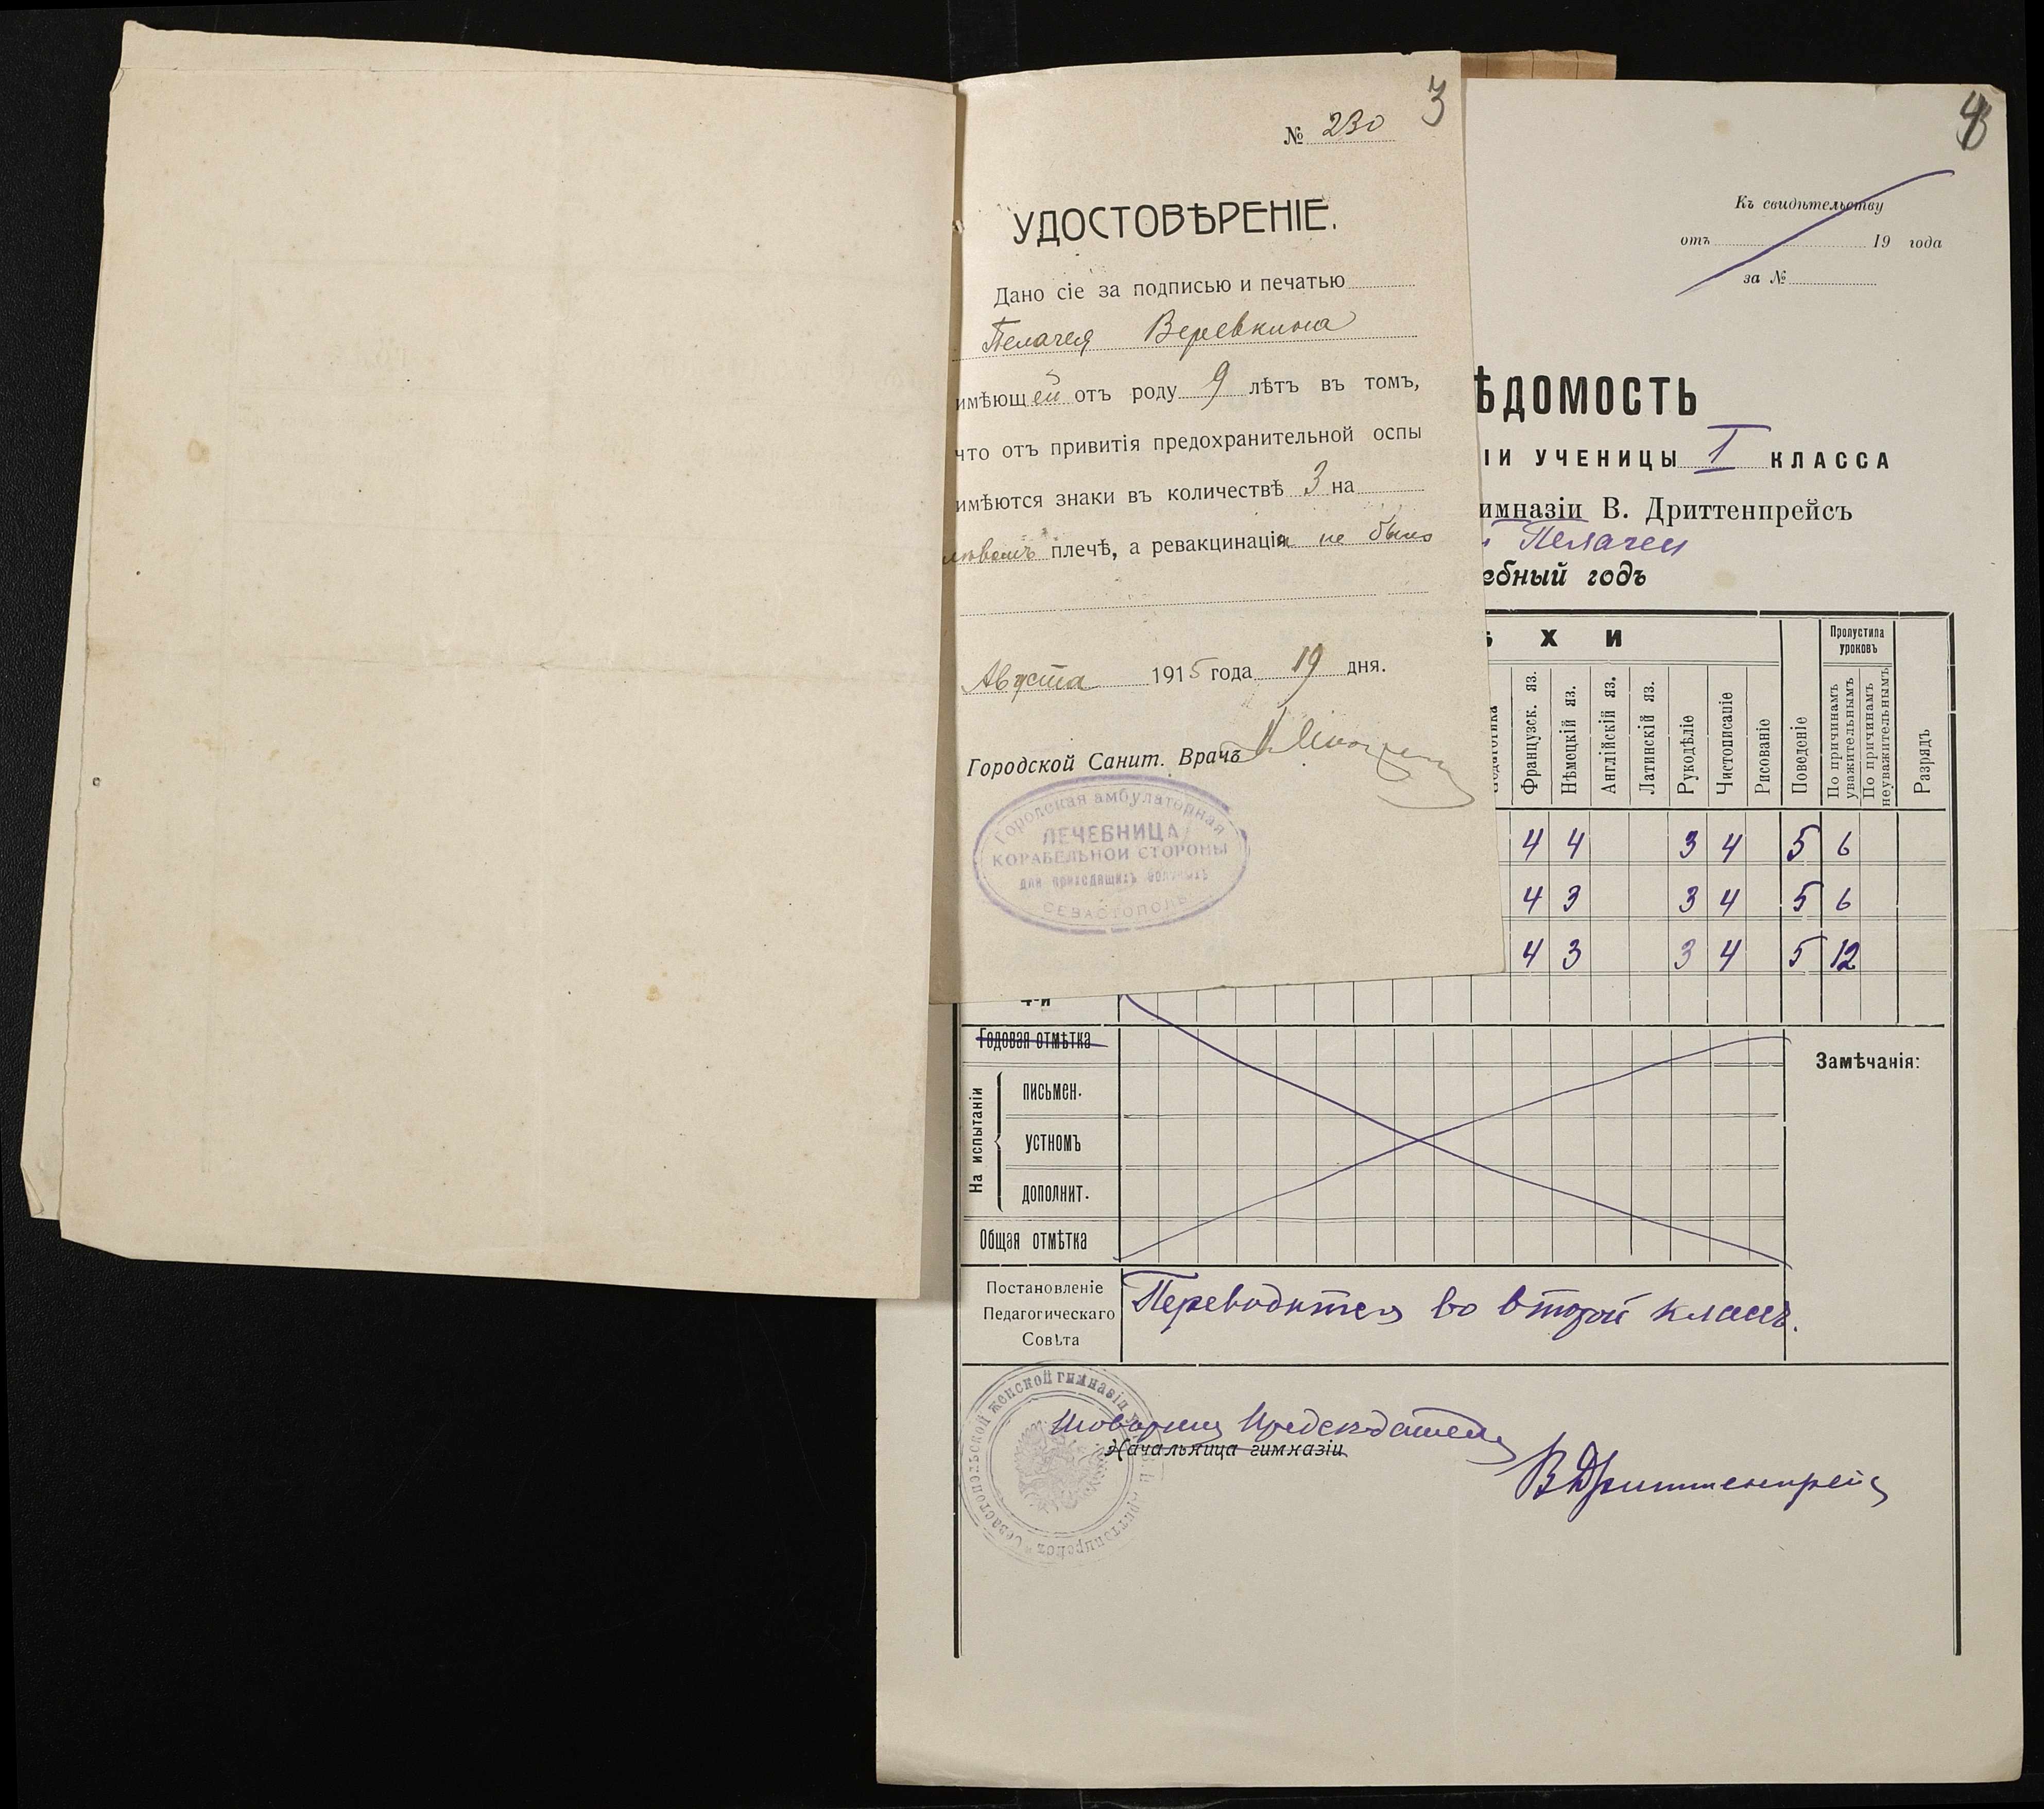 3
№ 230
УДОСТОВѢРЕНІЕ.
Дано сіе за подписью и печатью
Пелагея Веревкина
имѣющей отъ роду 9 лѣтъ въ томъ,
что отъ привитія предохранительной оспы
имѣются знаки въ количествѣ 3 на
лѣвомъ плечѣ, а ревакцинаціи не было
Августа 1915 года 19 дня.
Городской Санит. Врачъ
Городская амбулаторная
ЛЕЧЕБНИЦА
КОРАБЕЛЬНОЙ СТОРОНЫ
для приходящихъ больныхъ
СЕВАСТОПОЛЬ
4
Къ свидѣтельству
отъ 19 года
за №
ѢДОМОСТЬ
ІИ УЧЕНИЦЫ I КЛАССА
имназіи В. Дриттенпрейсъ
Пелагеи
ебный годъ
Х И
Пропустила уроковъ
Французск. яз.
Нѣмецкій яз.
Англійскій яз.
Латинскій яз.
Рукодѣліе
Чистописаніе
Рисованіе
Поведеніе
По причинамъ уважительнымъ
По причинамъ неуважительнымъ
Разрядъ
4 4 3 4 5 6
4 3 3 4 5 6
4 3 3 4 5 12
4-й
Годовая отмѣтка
Замѣчанія:
На испытаніи
письмен.
устномъ
дополнит.
Общая отмѣтка
Постановленіе
Педагогическаго
Совѣта
Переводится во второй классъ.
Севастопольской женской гимназіи
Товарищ Председателя
Начальница гимназіи
ВДриттенпрейс